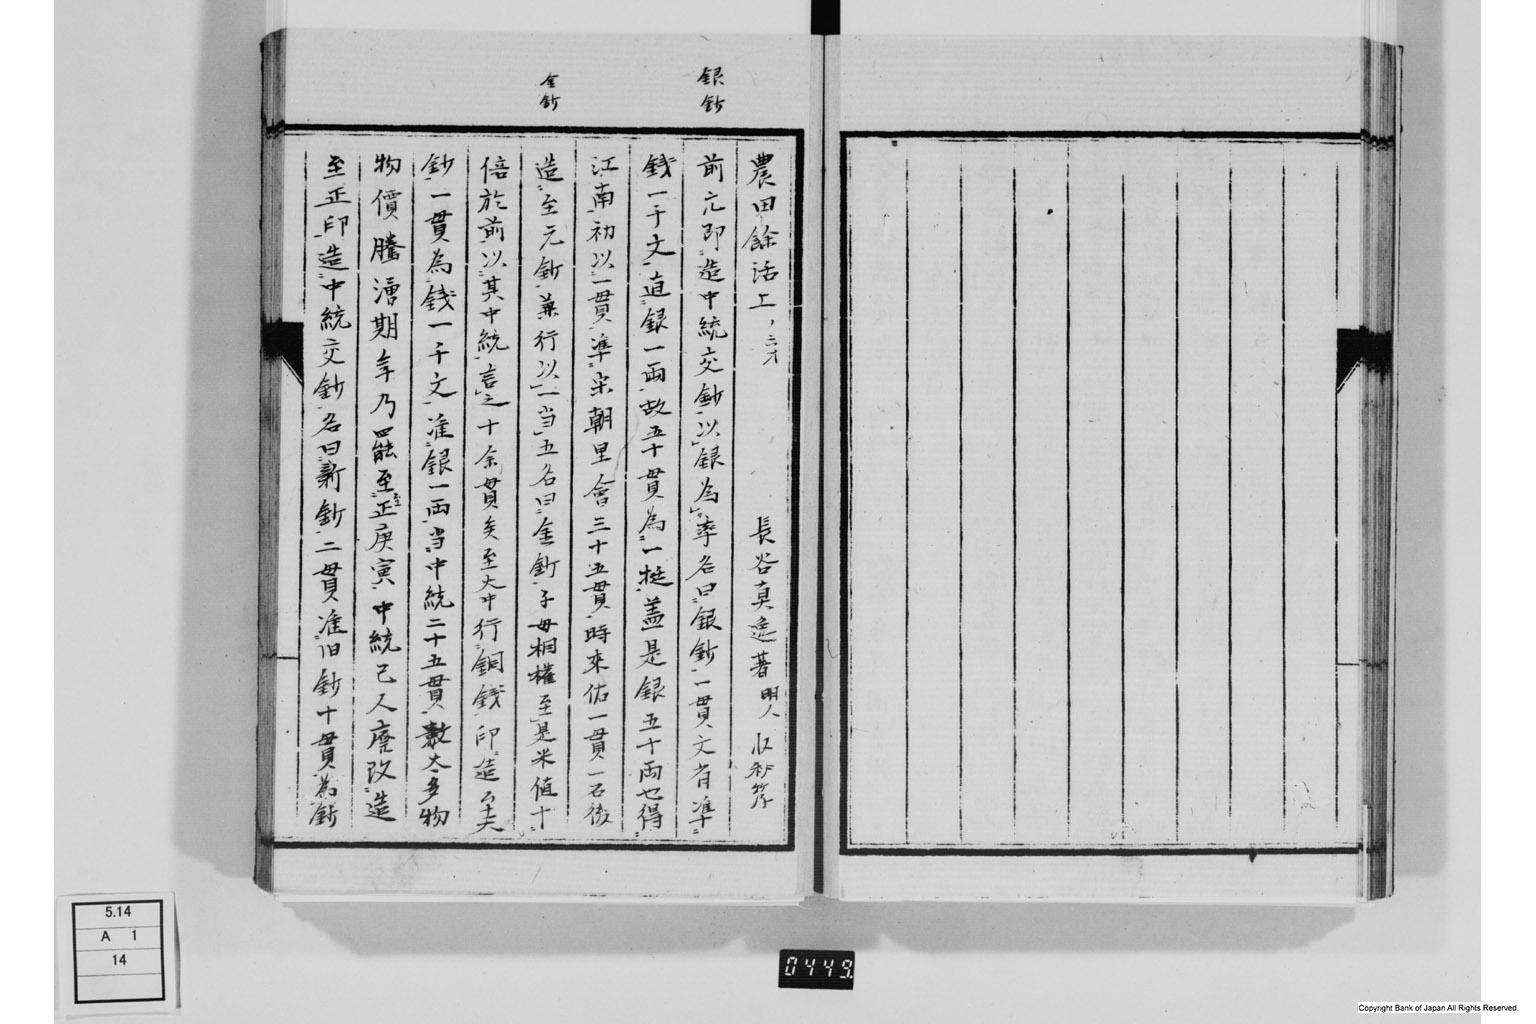 銀鈔
金鈔
農田餘話上 長谷真逸著 明人
前元即造中統交鈔以銀為率名曰銀鈔一貫文省準
錢一千文直銀一兩故五十貫為一挺盖是銀五十兩也得
江南初以一貫準宋朝里會三十五貫時來估一貫一石後
造至元鈔兼行以一当五名曰金鈔子母相権至是米值十
倍於前以其中統言之十余貫矣至大中行銅錢印造至大
鈔一貫為錢一千文准銀一両当中統二十五貫數太多物
物價騰湧期年乃罷至正庚寅中統已人廃改造
至正印造中統交鈔名曰新鈔二貫准旧鈔十貫為鈔
5.14
A 1
14
0449
Copyright Bank of Japan All Rights Reserved.